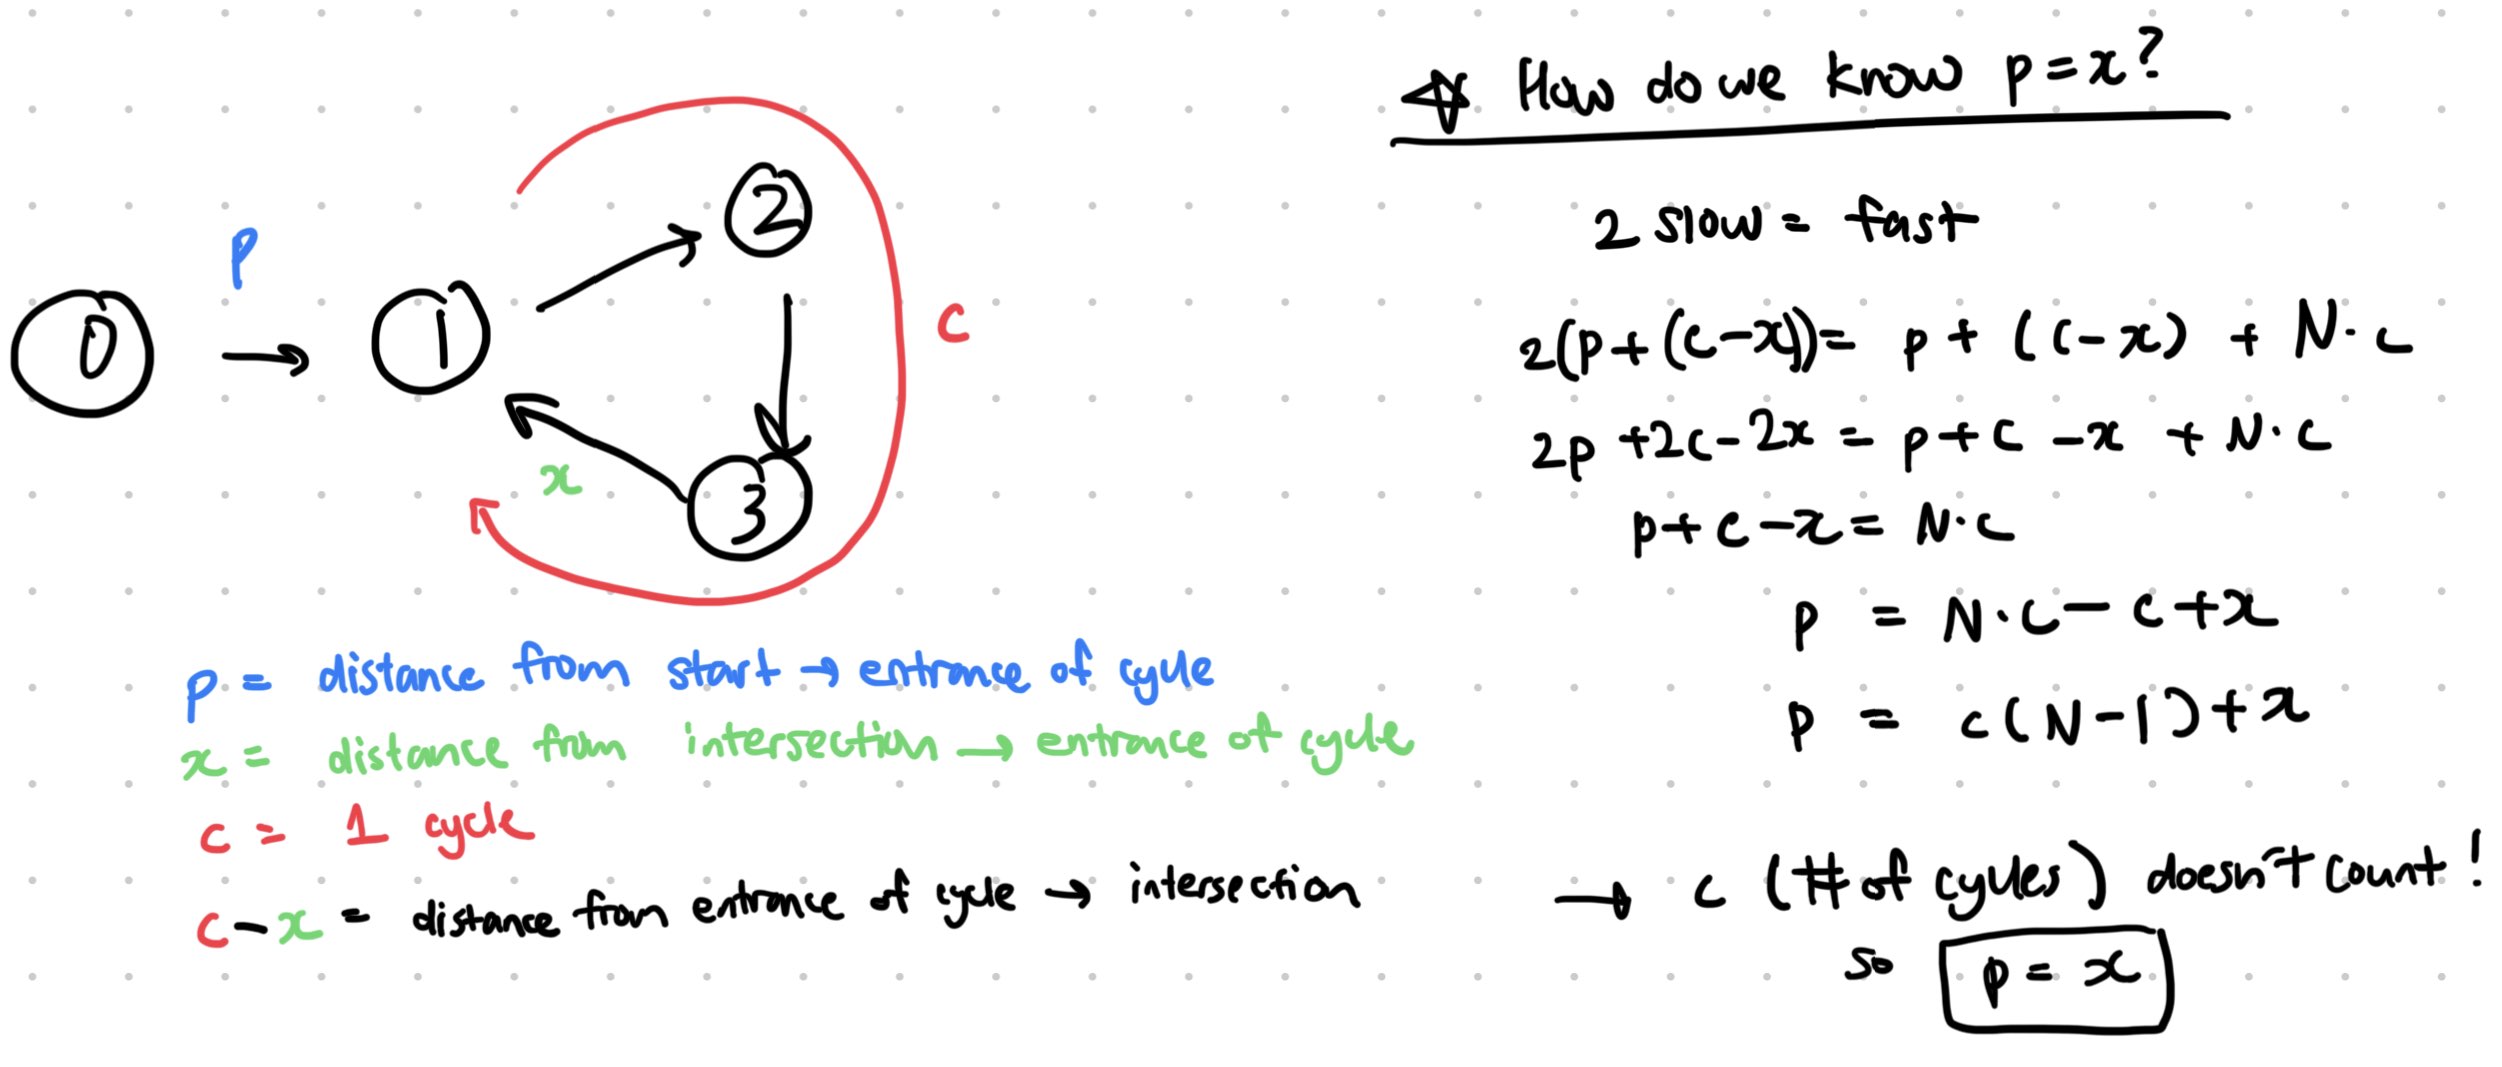 ☆ How do we know p=x?
2 slow = fast
2(p+(c-x))= p + (c-x) + N·c
2p +2c-2x = p+c -x + N·c
p+c-x= N·c
p = N·c-c+x
p = c(N-1)+x
→ c (# of cycles) doesn't count!
so p = x
p
0
1
2
3
c
x
p = distance from start → entrance of cycle
x = distance from intersection → entrance of cycle
c = 1 cycle
c-x = distance from entrance of cycle → intersection